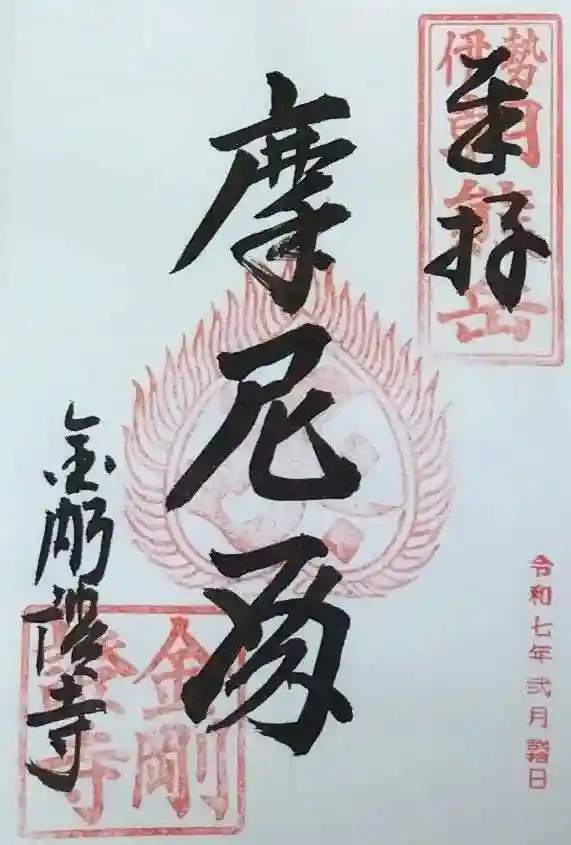 伊勢
朝熊岳
奉拝
摩尼殿
金剛證寺
金剛
證寺
令和七年弐月 日